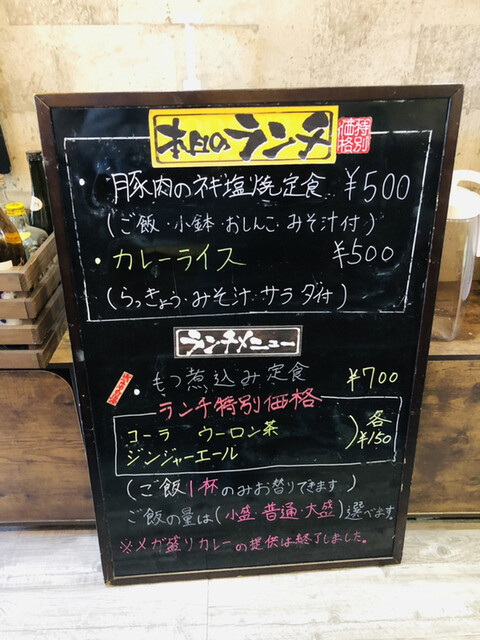 本日のランチ 特別価格
・豚肉のネギ塩焼定食 ¥500
(ご飯・小鉢・おしんこ・みそ汁付)
・カレーライス ¥500
(らっきょう・みそ汁・サラダ付)
ランチメニュー
・もつ煮込み定食 ¥700
ランチ特別価格
コーラ ウーロン茶
ジンジャーエール
)各¥150
(ご飯1杯のみお替りできます)
ご飯の量は(小盛・普通・大盛)選べます。
※メガ盛りカレーの提供は終了しました。